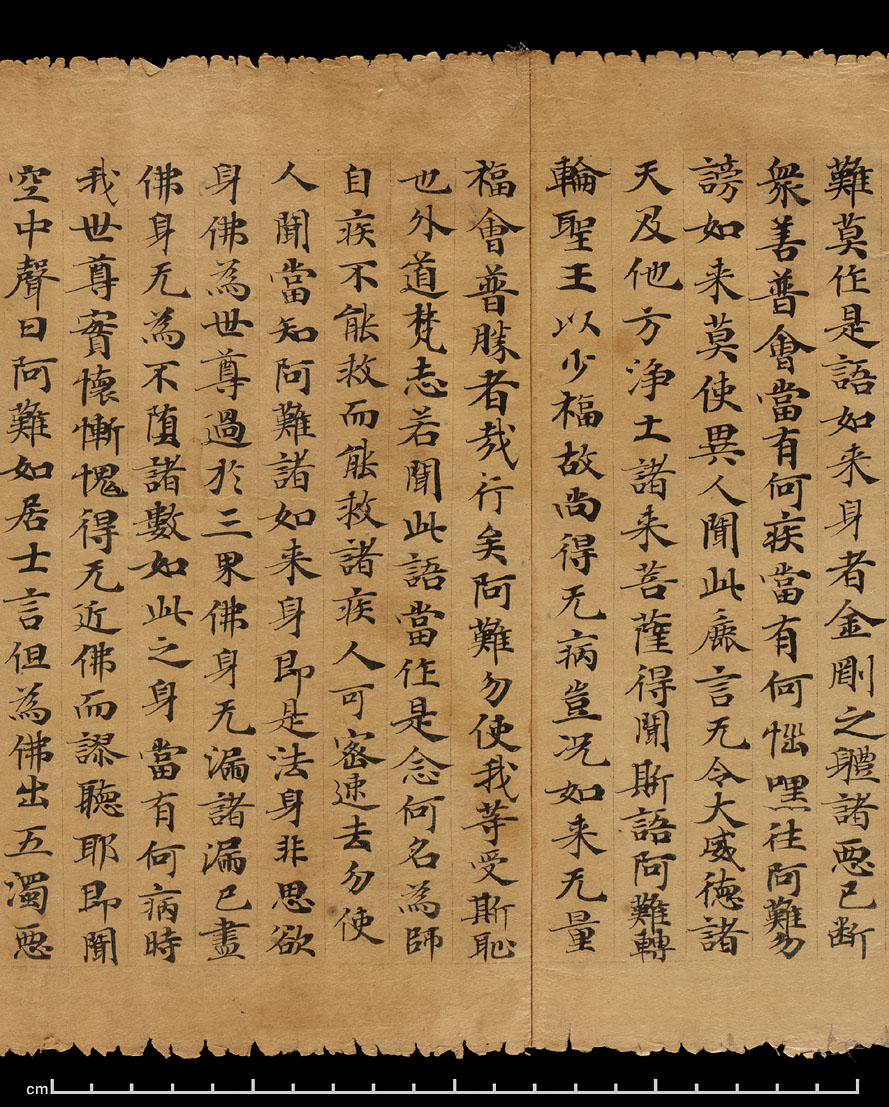 難莫作是語如来身者金剛之軆諸惡已断
衆善普會當有何疾當有何惱嘿往阿難勿
謗如来莫使異人聞此麁言无令大威德諸
天及他方淨土諸来菩薩得聞斯語阿難轉
輪聖王以少福故尚得无病豈况如来无量
福會普勝者哉行矣阿難勿使我等受斯恥
也外道梵志若聞此語當作是念何名為師
自疾不能救而能救諸疾人可密速去勿使
人聞當知阿難諸如来身即是法身非思欲
身佛為世尊過於三界佛身无漏諸漏已盡
佛身无為不堕諸數如此之身當有何病時
我世尊實懷慚愧得无近佛而謬聽耶即聞
空中聲曰阿難如居士言但為佛出五濁惡
cm